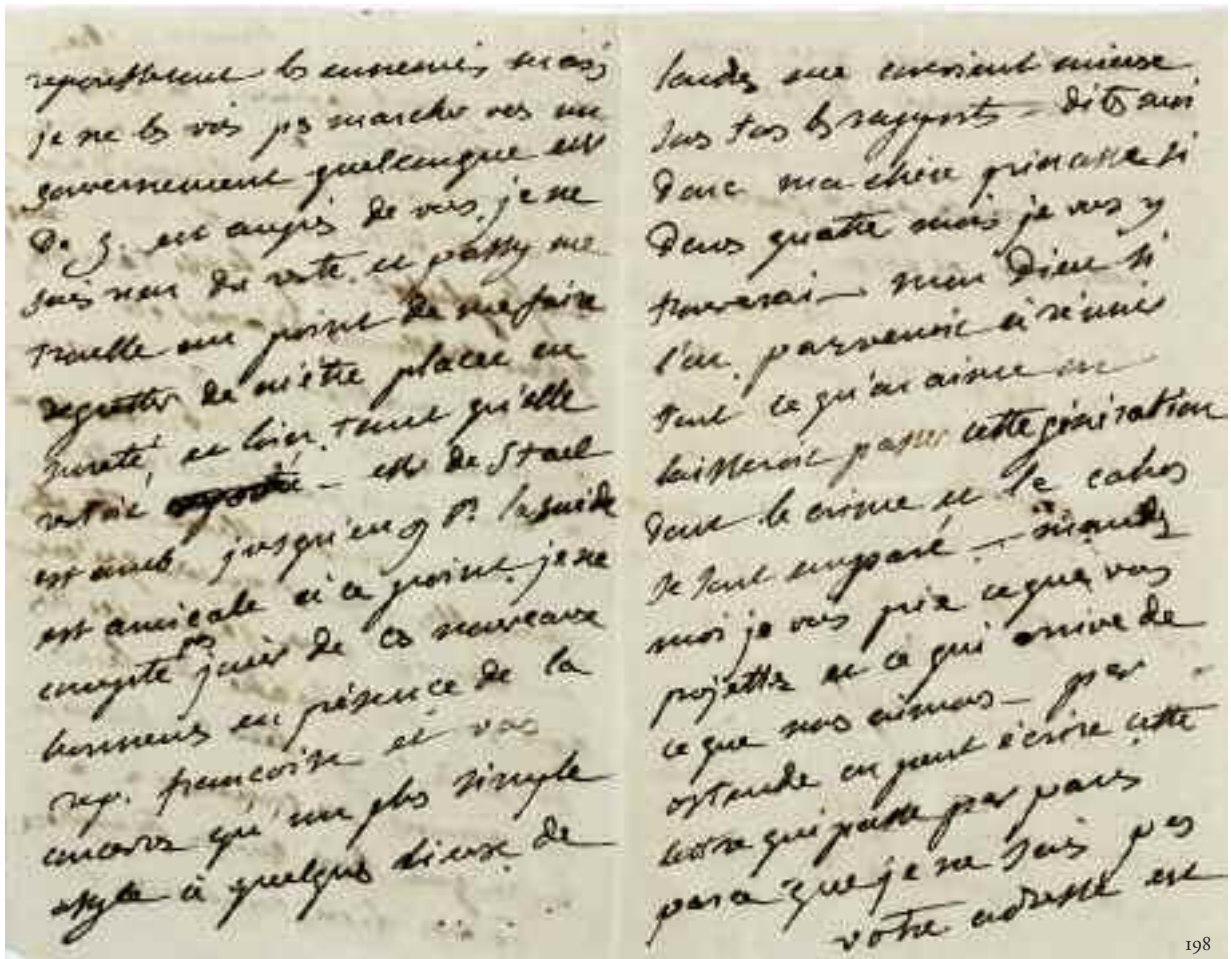 repoussent les ennemis mais
je ne les vois pas marcher vers un
gouvernement quelconque est
De g. est auprès de vous, je ne
sais rien du reste. et passy me
trouble au point de me faire
regretter de m'être placée en
sureté, si loin, tant qu'elle
restoit exposée – mr de Stael
est amb. jusqu'en 9 la suede
est amicale à ce point. je ne
compte pas jouir de ces nouveaux
honneurs en présence de la
rep. francoise et vous
concevez qu'un plus simple
asyle à quelques lieux de
londres me convient mieux
sous tous les rapports – dites moi
donc ma chère princesse si
dans quatre mois je vous y
trouverai – mon Dieu si
l'on parvenoit à réunir
tout ce qu'on aime on
laisseroit passer cette génération
dont le crime et le cahos
se sont emparé – mandez
moi je vous prie ce que vous
projettez et ce qui arrive de
ce que nous aimons – par
ostende on peut écrire cette
lettre qui passe par paris
parce que je ne sais pas
votre adresse est
198